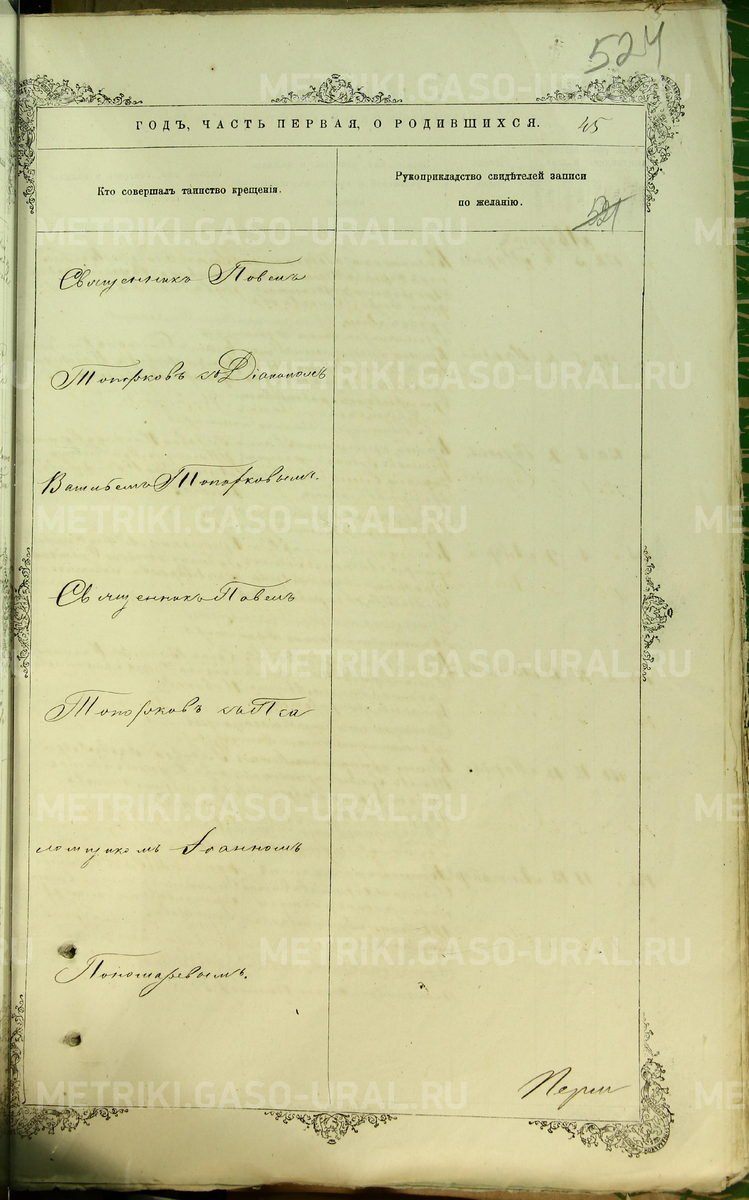 524
ГОДЪ, ЧАСТЬ ПЕРВАЯ, О РОДИВШИХСЯ. 45
Кто совершалъ таинство крещенія.
Рукоприкладство свидѣтелей записи
по желанію.
521
Священникъ Павелъ
Топорковъ съ Діакономъ
Васильемъ Топорковымъ.
Священникъ Павелъ
Топорковъ съ Пса
ломщикомъ Іоанномъ
Пономаревымъ.
METRIKI.GASO-URAL.RU